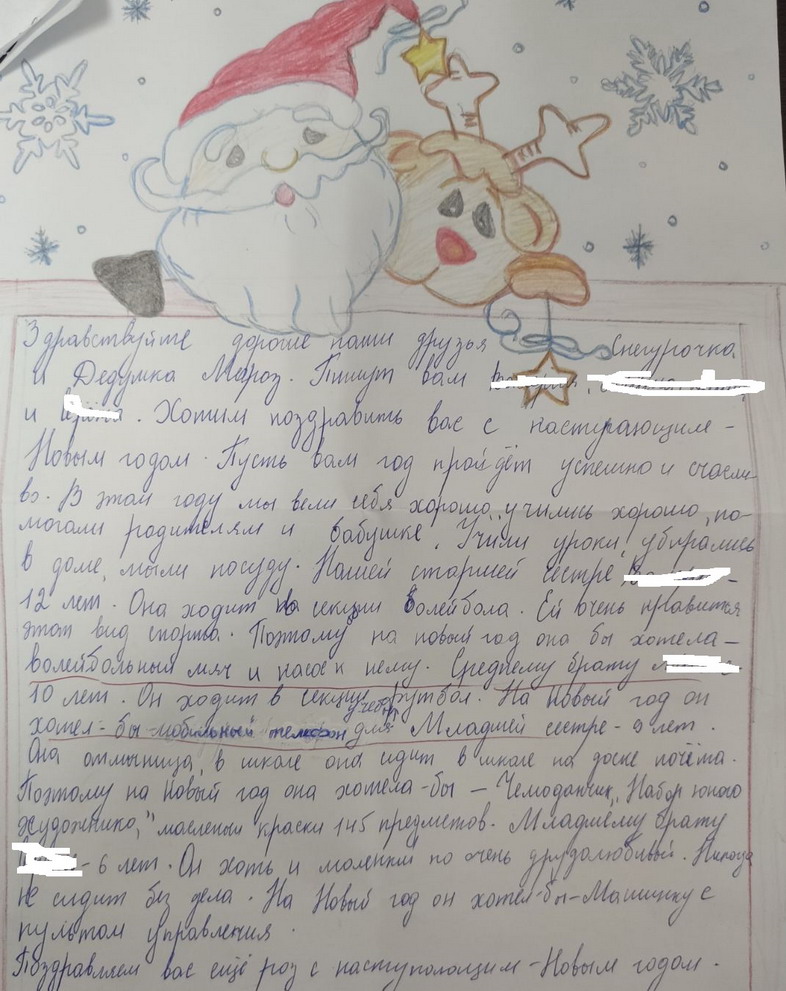 Здравствуйте дорогие наши друзья Снегурочка
и Дедушка Мороз. Пишут вам
и . Хотим поздравить вас с наступающим-
Новым годом. Пусть вам год пройдёт успешно и счасли-
во. В этом году мы вели себя хорошо, учились хорошо, по-
могали родителям и бабушке. Учили уроки, убирались
в доме, мыли посуду. Нашей старшей сестре -
12 лет. Она ходит на секции волейбола. Ей очень нравится
этот вид спорта. Поэтому на новый год она бы хотела-
волейбольный мяч и насос к нему. Среднему брату
10 лет. Он ходит в секцию футбол. На Новый год он
хотел-бы мобильный телефон для учёбы Младшей сестре - 9 лет.
Она отличница, в школе она сидит в школе на доске почёта.
Поэтому на Новый год она хотела-бы - Чемоданчик, Набор юного
художника," масленые краски 145 предметов. Младшему брату
- 6 лет. Он хоть и маленкий но очень трудолюбивый. Никогда
не сидит без дела. На Новый год он хотел-бы-Машинку с
пультом управления.
Поздравляем вас ещё роз с наступающим-Новым годом.